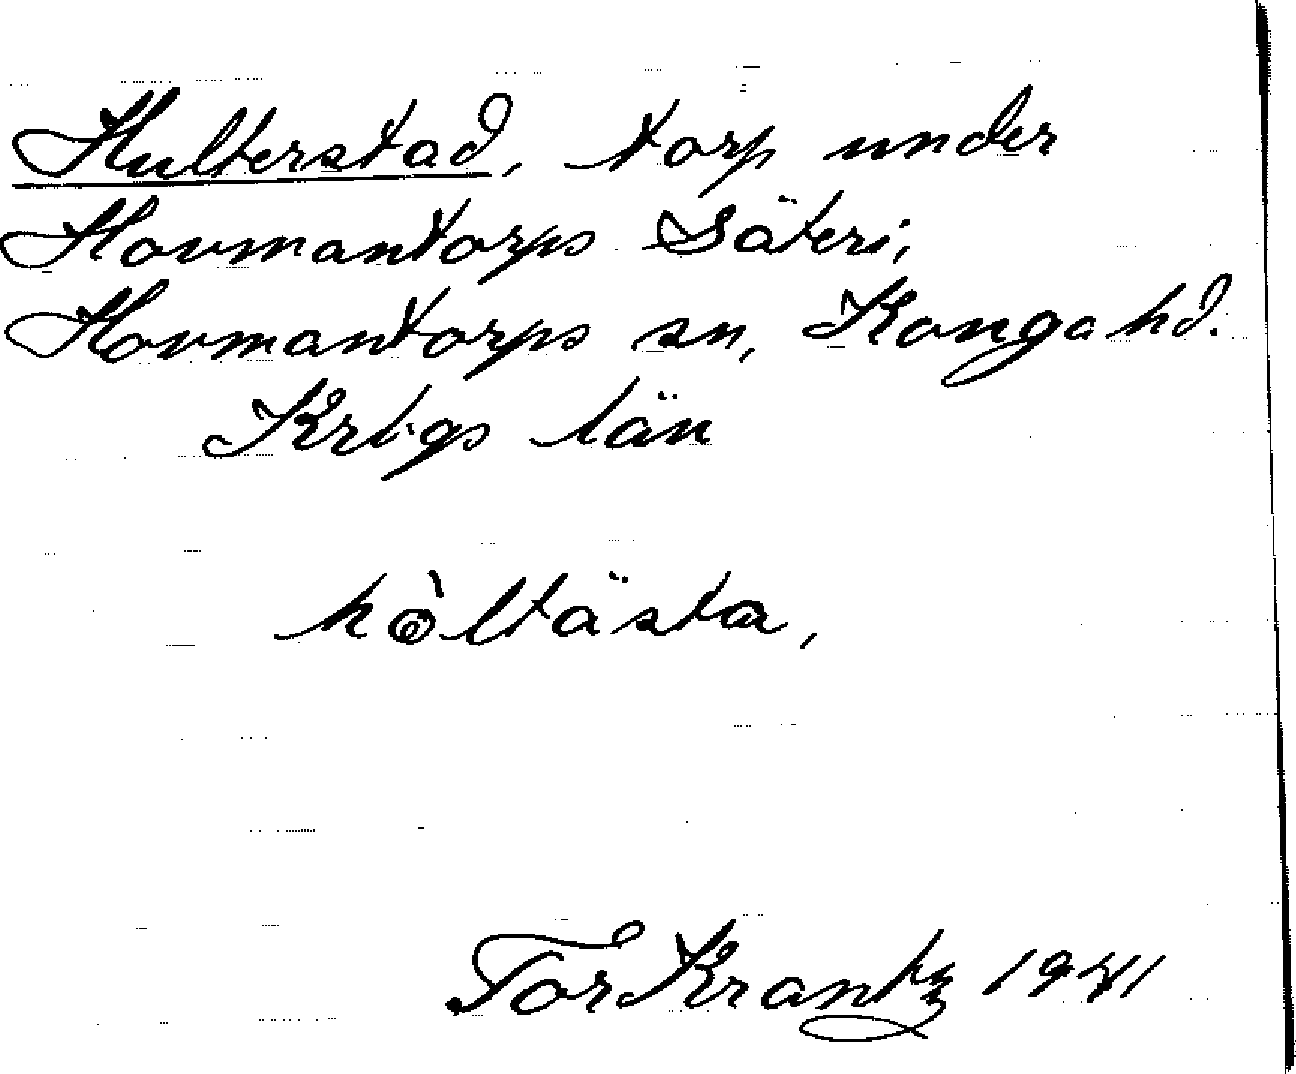 Hulterstad, torp under
Hovmantorps Säteri,
Hovmantorps sn, Konga hd.
Krbgs län
hòltästa,
Tor Krantz 1941